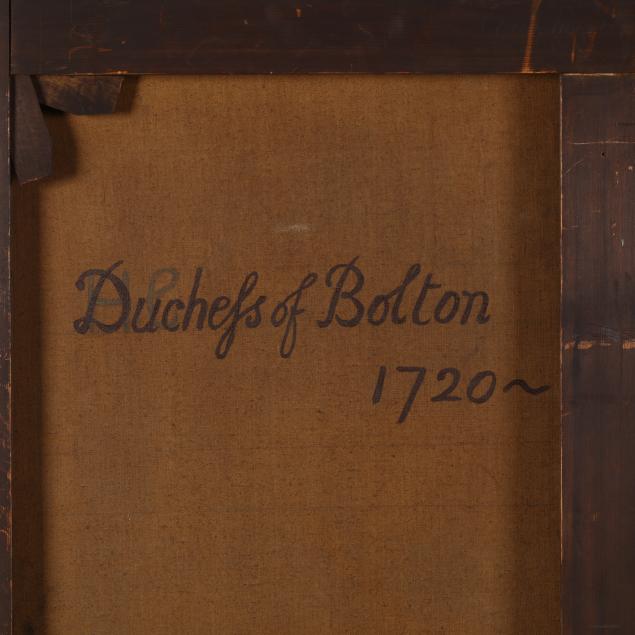 Ducheſs of Bolton
1720~